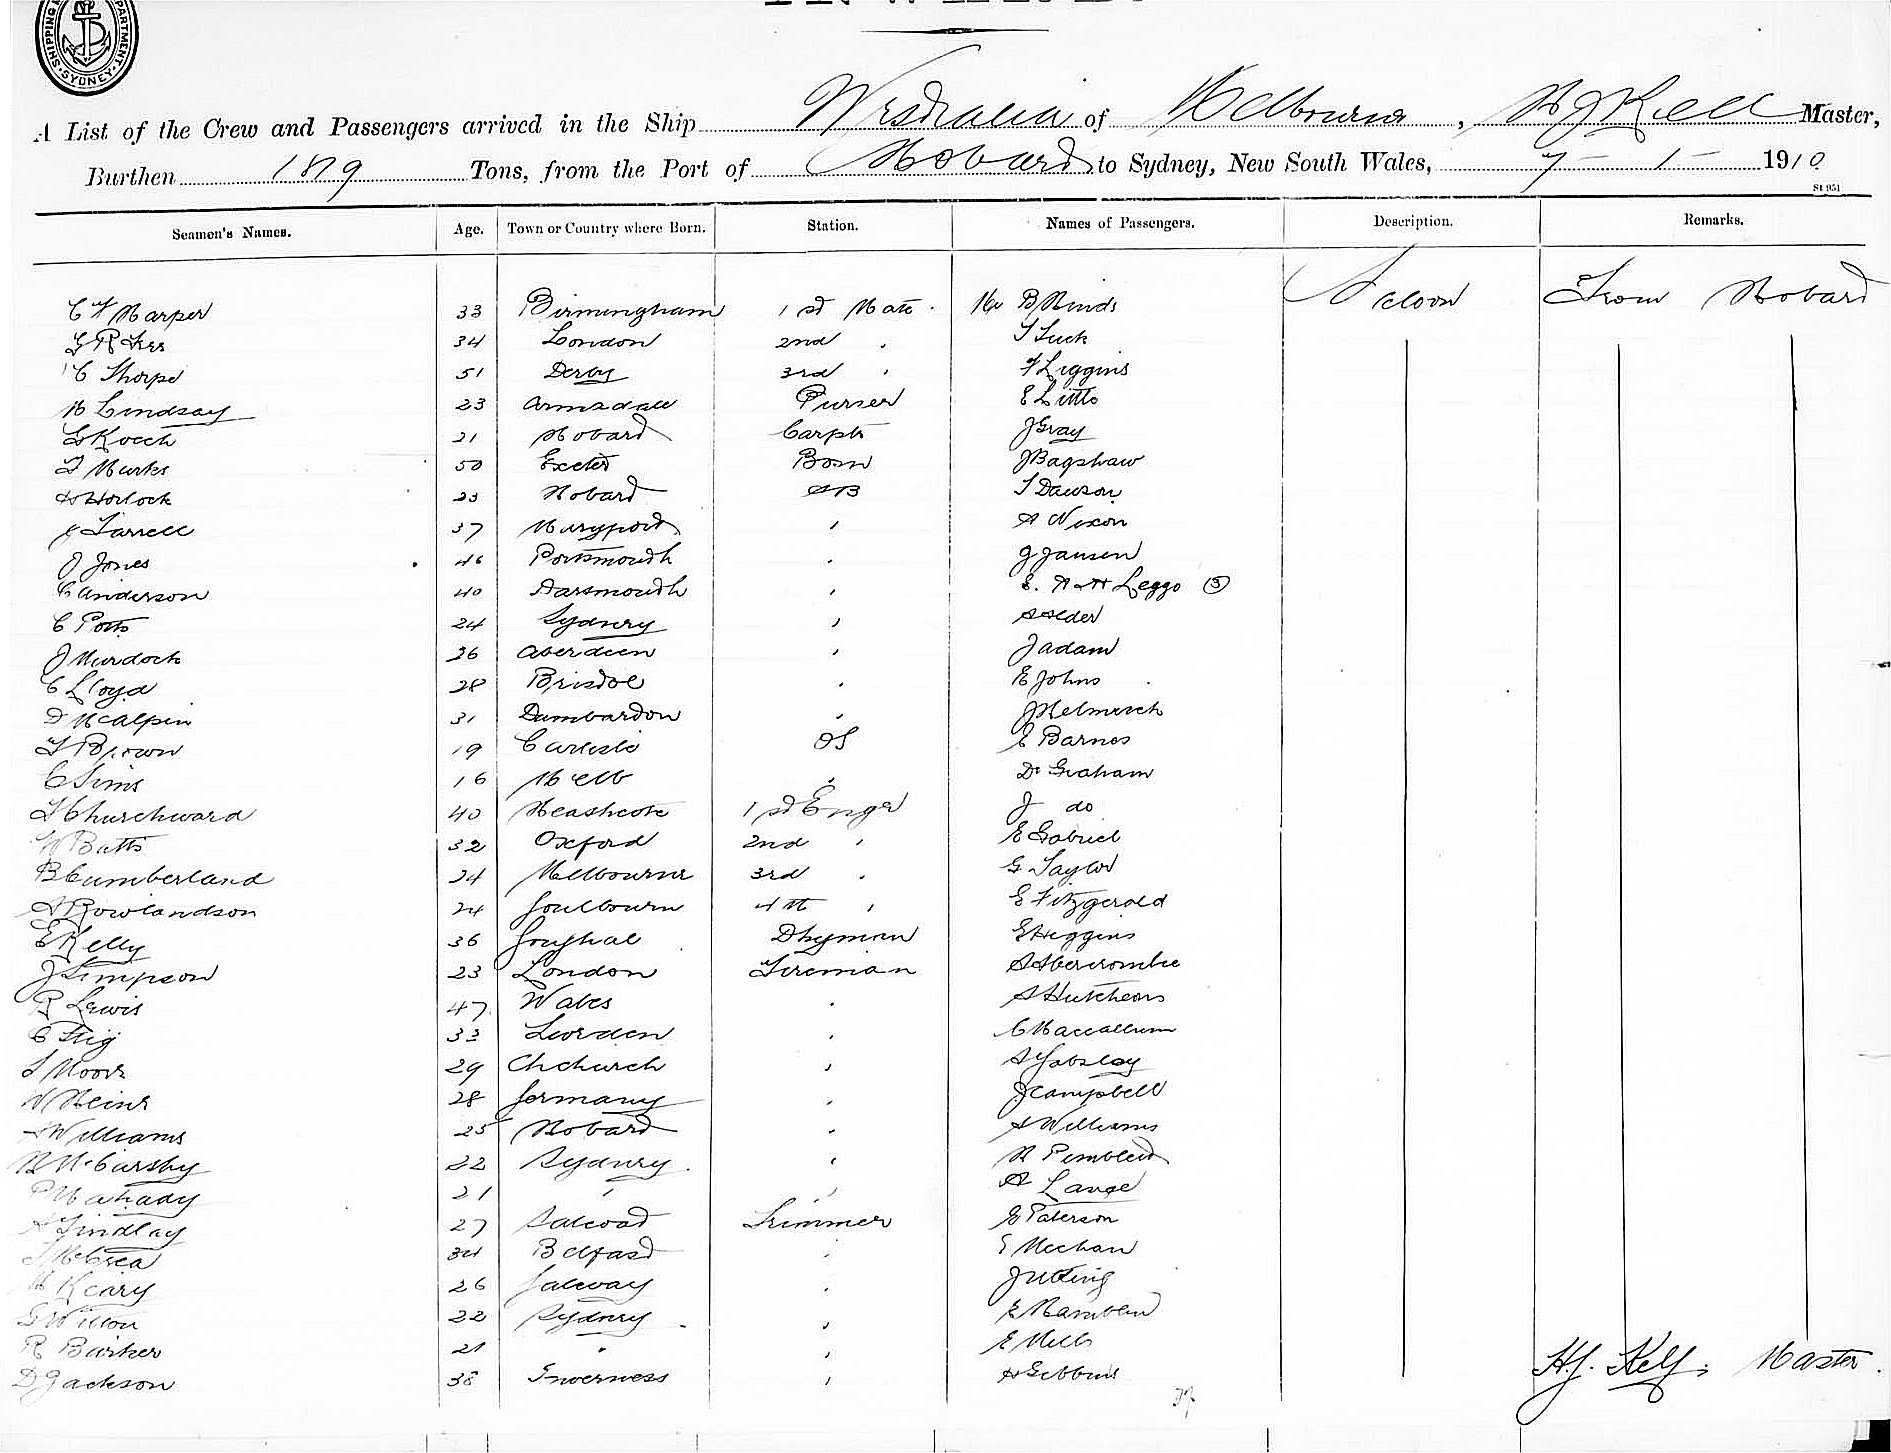 SHIPPING DEPARTMENT. SYDNEY.
A List of the Crew and Passengers arrived in the Ship Westralia of Melbourne, H J Kell Master,
Burthen 1819 Tons, from the Port of Hobart to Sydney, New South Wales, 7 - 1 - 1910
St 951
Seamen's Names. Age. Town or Country where Born. Station. Names of Passengers. Description. Remarks.
C F Harper 33 Birmingham 1st Mate Mr B Hinds Saloon From Hobart
34 London 2nd " T Tuck
C Thorpe 51 Derby 3rd " F Liggins
H Lindsay 23 Armadale Purser E Little
G Koech 21 Hobart Carptr J Gray
T Marks 50 Exeter Bosn J Bagshaw
H Horlock 23 Hobart AB T Dawson
J Farrell 37 Maryport " A Nixon
J Jones 46 Portsmouth " J Jansen
C Anderson 40 Darsmouth " E. A & H Leggo (3)
C Potts 24 Sydney " A Alder
J Murdock 26 Aberdeen " J Adam
C Lloyd 28 Bristol " E Johns
D McAlpin 31 Dumbarton " J Helmrich
T Brown 19 Carlisle OS E Barnes
C Sims 16 Melb " Dr Graham
T Churchward 40 Heathcote 1st Engr J do
W Batts 32 Oxford 2nd " E Gabriel
B Cumberland 24 Melbourne 3rd " G Taylor
A Rowlandson 24 Goulbourn 4th " E Fitzgerald
E Kelly 36 Youghal Dkyman E Higgins
J Simpson 23 London Fireman A Abercrombie
R Lewis 47 Wales " A Hutcheons
C Stig 33 Sweden " C Maccallum
T Moore 29 Chchurch " A Yabsley
W Heine 28 Germany " J Campbell
A Williams 25 Hobart " A Williams
H McCarthy 22 Sydney " H
P Mahady 21 " " A Lange
A Findlay 27 Salcoat Trimmer E Paterson
T McCrea 34 Belfast " E Meehan
M Keary 26 Galway " J Uting
G Wilson 22 Sydney "
R Barker 21 " " E Mills
D Jackson 38 Inverness " A Gibbons
H.J. Kell, Master.